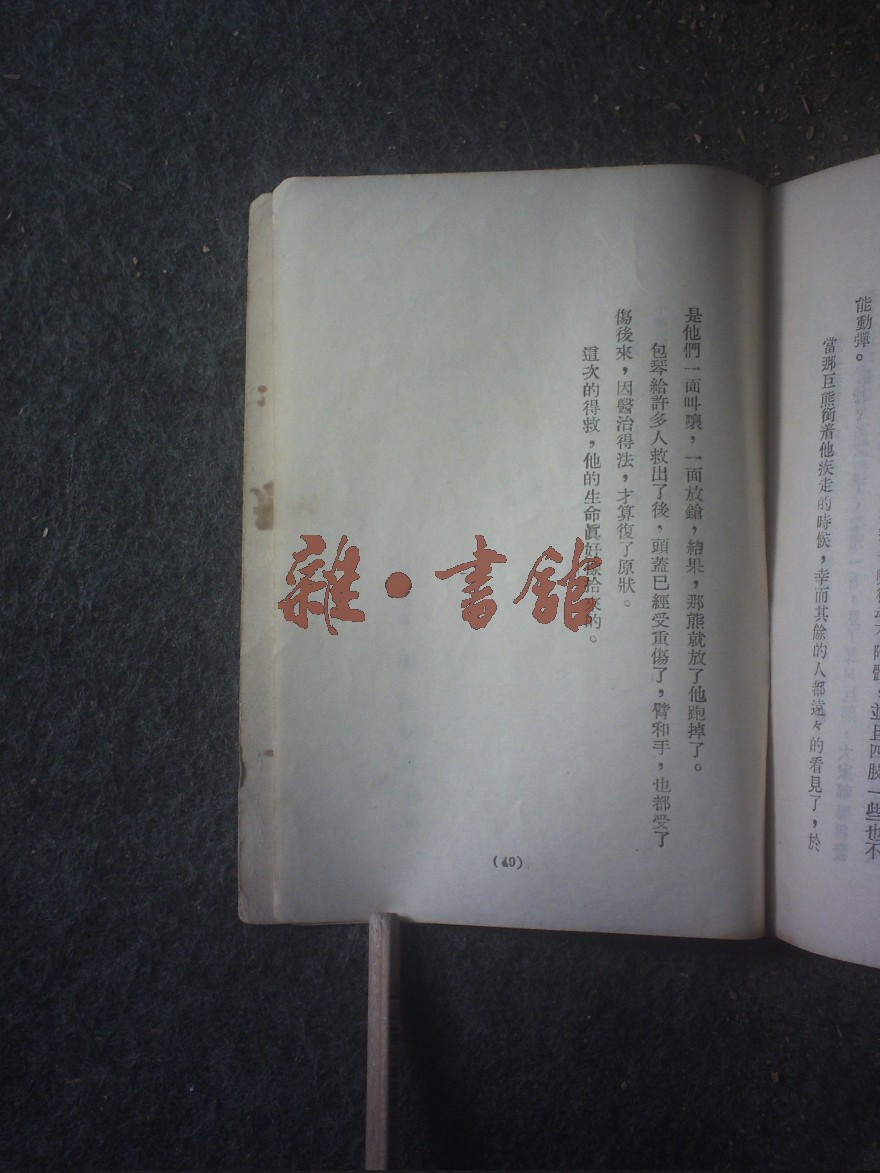 能動彈。
當那巨熊銜着他疾走的時候，幸而其餘的人都遠々的看見了，於
是他們一面叫讓，一面放鎗，結果，那熊就放了他跑掉了。
包琴給許多人救出了後，頭蓋已經受重傷了，臂和手，也都受了
傷後來，因醫治得法，才算復了原狀。
這次的得救，他的生命眞好像拾來的。
(49)
雜·書館